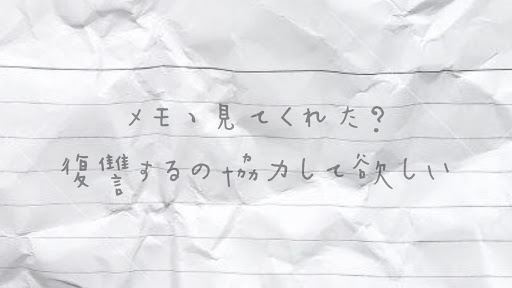 メモ、見てくれた?
復讐するの協力して欲しい